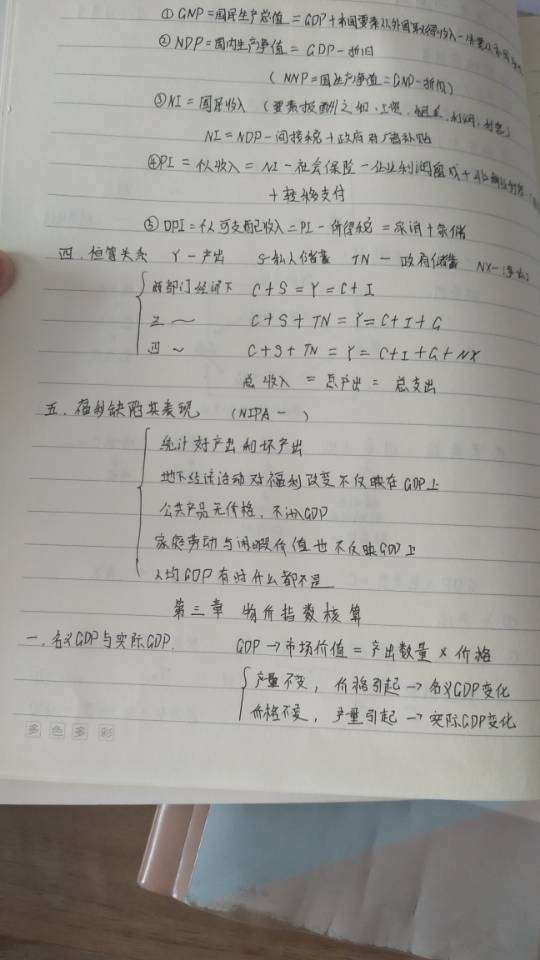 ① GNP=国民生产总值 = GDP+本国要素从外国取得收入-
② NDP=国内生产净值 = GDP-折旧
(NNP=国民生产净值=GNP-折旧)
③NI = 国民收入 (要素报酬之和:工资、租金、利润、利息)
NI = NDP-间接税+政府对厂商补贴
④PI = 个人收入 = NI-社会保险-企业利润留成+
+转移支付
⑤ DPI=个人可支配收入=PI-所得税 = 消费+储蓄
四、恒等关系 Y-产出 S-私人储蓄 TN-政府储蓄 NX-
两部门经济下 C+S=Y=C+I
三 ~ C+S+TN=Y=C+I+G
四 ~ C+S+TN=Y=C+I+G+NX
总收入 = 总产出 = 总支出
五、福利缺陷其表现 (NIPA- )
统计好产出和坏产出
地下经济活动对福利改变不反映在GDP上
公共产品无价格,不计入GDP
家庭劳动与闲暇价值也不反映GDP上
人均GDP有时什么都不是
第三章 物价指数核算
一、名义GDP与实际GDP. GDP→市场价值=产出数量×价格
产量不变,价格引起→名义GDP变化
价格不变,产量引起→实际GDP变化
多色多彩